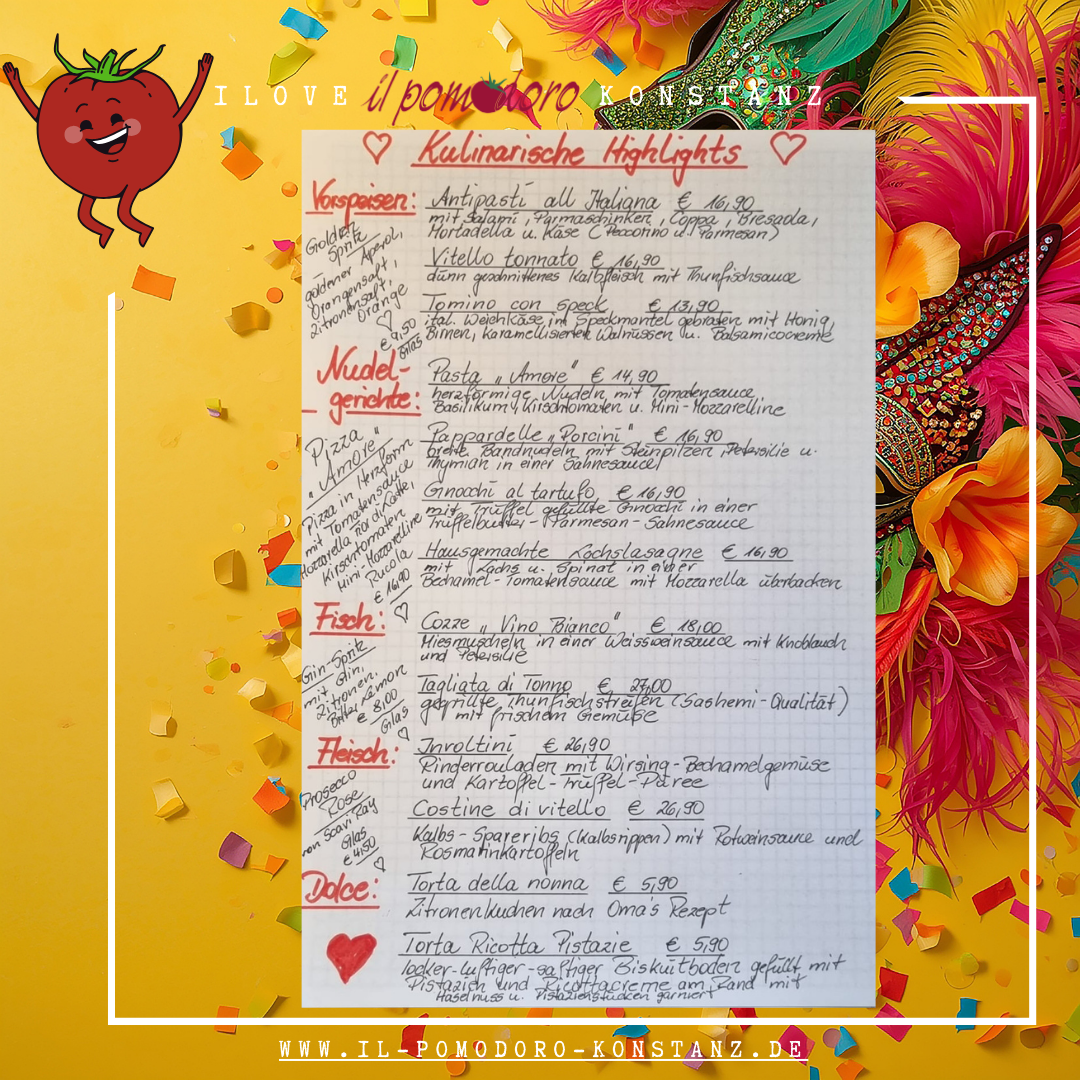 I LOVE il pomodoro KONSTANZ
Kulinarische Highlights
Vorspeisen:
Antipasti all Italiana € 16,90
mit Salami, Parmaschinken, Coppa, Bresaola,
Mortadella u. Käse (Peccorino u. Parmesan)
Vitello tonnato € 16,90
dünn geschnittenes Kalbfleisch mit Thunfischsauce
Tomino con Speck € 13,90
ital. Weichkäse im Speckmantel gebraten mit Honig,
Birnen, karamellisierten Walnüssen u. Balsamicocreme
Golden
Spritz
goldener Aperol,
Orangensaft,
Zitronensaft,
Orange
€ 9,50
Glas
Nudel-
gerichte:
Pasta „Amore" € 14,90
herzförmige Nudeln mit Tomatensauce,
Basilikum, Kirschtomaten u. Mini-Mozzarelline
Pappardelle „Porcini" € 16,90
breite Bandnudeln mit Steinpilzen, Petersilie u.
Thymian in einer Sahnesauce
Gnocchi al tartufo € 16,90
mit Trüffel gefüllte Gnocchi in einer
Trüffelbutter-Parmesan-Sahnesauce
Hausgemachte Lachslasagne € 16,90
mit Lachs u. Spinat in einer
Bechamel-Tomatensauce mit Mozzarella überbacken
Pizza
„Amore"
Pizza in Herzform
mit Tomatensauce
Mozzarella fior di latte,
Kirschtomaten
Mini-Mozzarelline
Rucola
€ 16,90
Fisch:
Cozze „Vino Bianco" € 18,00
Miesmuscheln in einer Weissweinsauce mit Knoblauch
und Petersilie
Tagliata di Tonno € 27,00
gegrillte Thunfischstreifen (Sashemi-Qualität)
mit frischem Gemüse
Gin-Spritz
mit Gin,
Zitronen,
Bitter Lemon
€ 8,00
Glas
Fleisch:
Involtini € 26,90
Rinderrouladen mit Wirsing-Bechamelgemüse
und Kartoffel-Trüffel-Püree
Costine di vitello € 26,90
Kalbs-Spareribs (Kalbsrippen) mit Rotweinsauce und
Rosmarinkartoffeln
Prosecco
Rose
von Scavi Ray
Glas
€ 4,50
Dolce:
Torta della nonna € 5,90
Zitronenkuchen nach Oma's Rezept
Torta Ricotta Pistazie € 5,90
locker-luftiger-saftiger Biskuitboden gefüllt mit
Pistazien und Ricottacreme am Rand mit
Haselnuss u. Pistazienstücken garniert
WWW.IL-POMODORO-KONSTANZ.DE